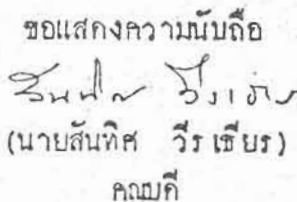 ขอแสดงความนับถือ
(นายสันทิศ วีรเธียร)
คณบดี